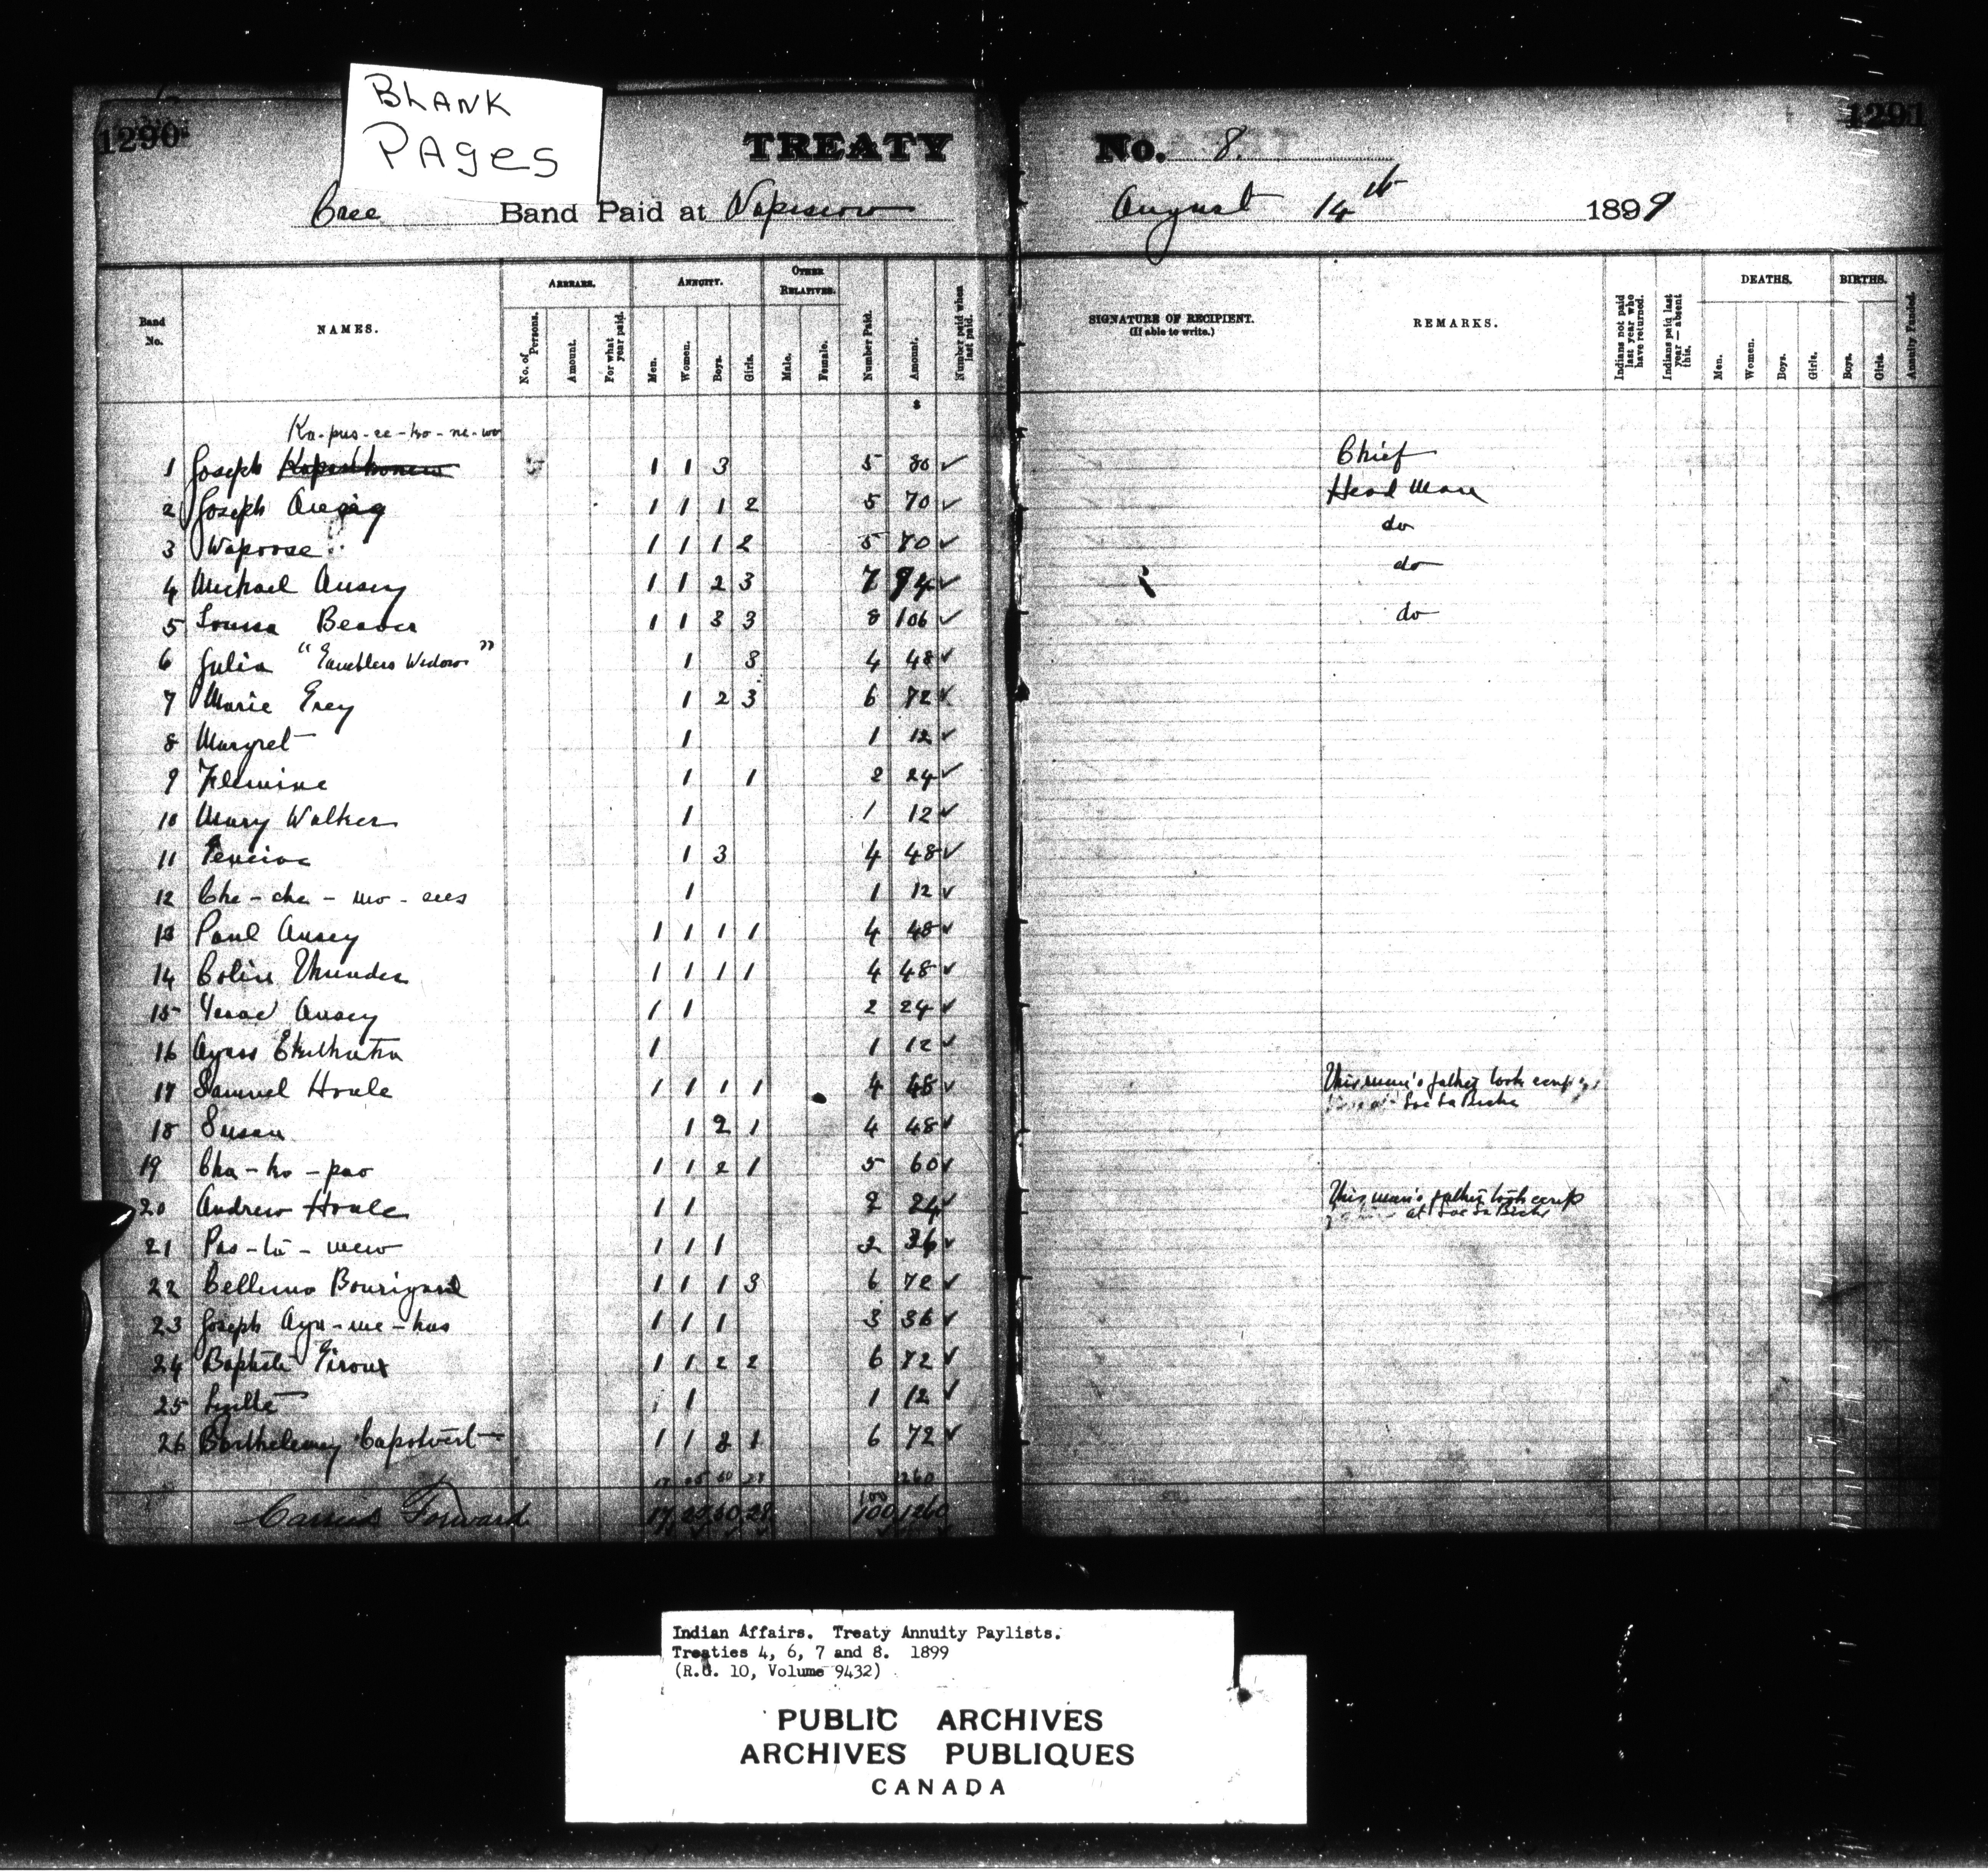 BLANK
PAGES
1290
1291
TREATY No. 8.
Cree Band Paid at Wapiscow August 14th 1899
Band No.
NAMES.
ARREARS.
No. of Persons.
Amount.
For what year paid.
ANNUITY.
Men.
Women.
Boys.
Girls.
OTHER RELATIVES.
Male.
Female.
Number Paid.
Amount.
Number paid when last paid.
SIGNATURE OF RECIPIENT.
(If able to write.)
REMARKS.
Indians not paid last year who have returned.
Indians paid last year—absent this.
DEATHS.
Men.
Women.
Boys.
Girls.
BIRTHS.
Boys.
Girls.
Annuity Funded.
$
Ka-pus-ee-ko-ne-wo
1 Joseph 1 1 3 5 80 ✓ Chief
2 Joseph 1 1 1 2 5 70 ✓ Head Man
3 Wapoose 1 1 1 2 5 70 ✓ do
4 Michael Ausey 1 1 2 3 7 94 ✓ do
5 Louisa Beaver 1 1 3 3 8 106 ✓ do
6 Julia "Gamblers Widow" 1 3 4 48 ✓
7 Marie Grey 1 2 3 6 72 ✓
8 Margret 1 1 12 ✓
9 Flemine 1 1 2 24 ✓
10 Mary Walker 1 1 12 ✓
11 1 3 4 48 ✓
12 Che-che-mo-sees 1 1 12 ✓
13 Paul Ausey 1 1 1 1 4 48 ✓
14 Colin Thunder 1 1 1 1 4 48 ✓
15 Isaac Ausey 1 1 2 24 ✓
16 1 1 12 ✓
17 Samuel Houle 1 1 1 1 4 48 ✓ This man's father took scrip
Lac La Biche
18 Susan 1 2 1 4 48 ✓
19 Cha-ko-pao 1 1 2 1 5 60 ✓
20 Andrew Houle 1 1 2 24 ✓ This man's father took scrip
at Lac La Biche
21 Pas-ta-mew 1 1 1 3 36 ✓
22 1 1 1 3 6 72 ✓
23 Joseph Aya-me-kas 1 1 1 3 36 ✓
24 Baptiste Giroux 1 1 2 2 6 72 ✓
25 1 1 12 ✓
26 Barthelemy Capotvert 1 1 3 1 6 72 ✓
Carried Forward 17 100 1260
Indian Affairs. Treaty Annuity Paylists.
Treaties 4, 6, 7 and 8. 1899
(R.G. 10, Volume 9432)
PUBLIC ARCHIVES
ARCHIVES PUBLIQUES
CANADA